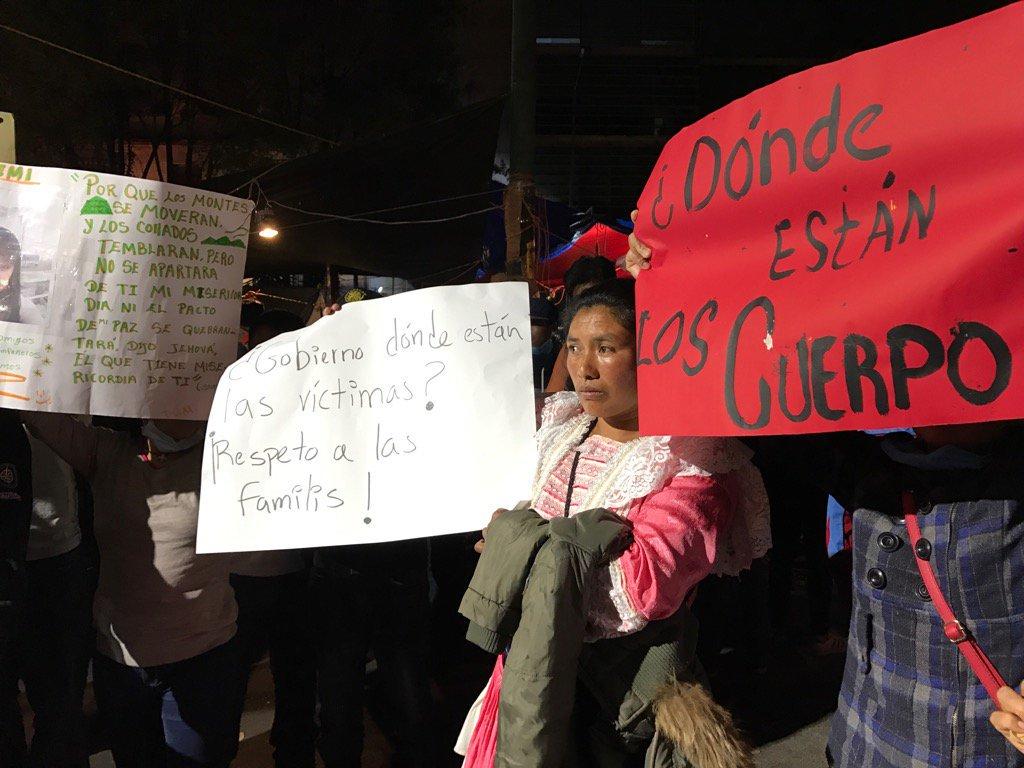 "POR QUE LOS MONTES
SE MOVERAN.
Y LOS COLLADOS
TEMBLARAN. PERO
NO SE APARTARA
DE TI MI MISERICOR
DIA NI EL PACTO
DE MI PAZ SE QUEBRAN-
TARA, DIJO JEHOVÁ,
EL QUE TIENE MISE
RICORDIA DE TI"
¿Gobierno dónde están
las víctimas?
¡Respeto a las
familis!
¿DÓNDE
ESTÁN
LOS CUERPO